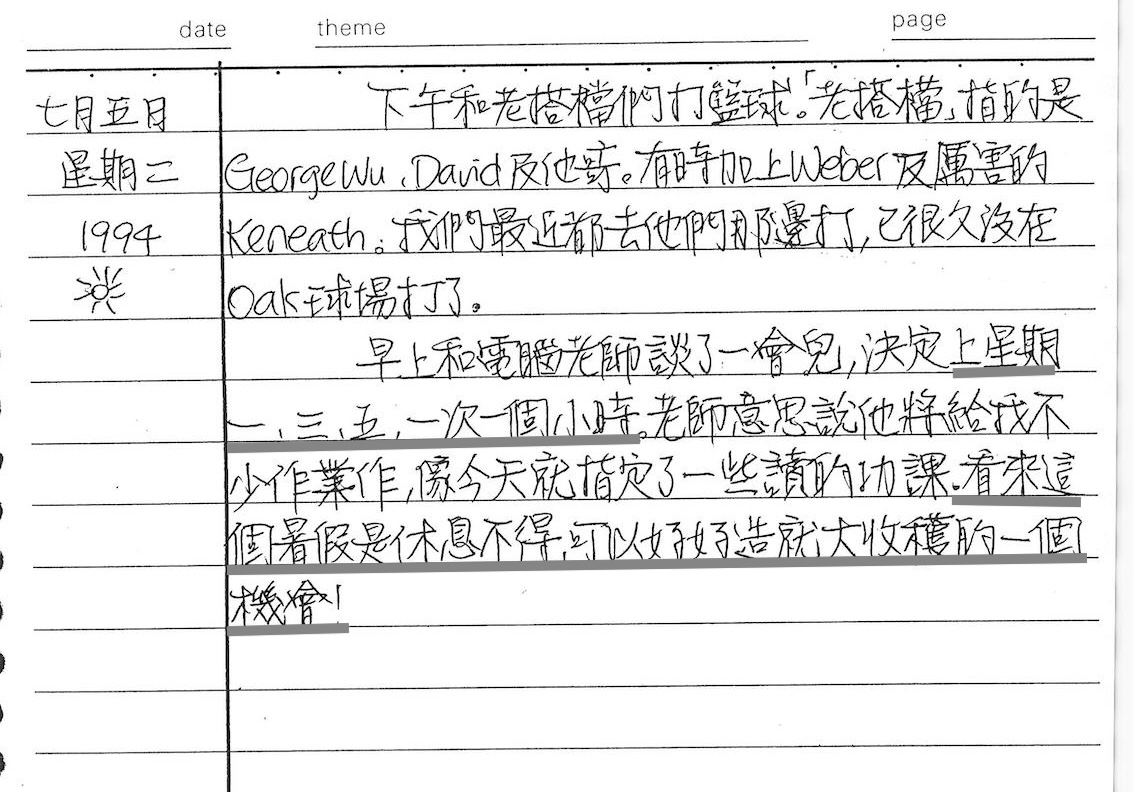 date theme page
七月五日 下午和老搭檔們打籃球。「老搭檔」指的是
星期二 George Wu、David及他哥。有時加上Weber及厲害的
1994 Keneath。我們最近都去他們那邊打，已很久沒在
Oak球場打了。
早上和電腦老師談了一會兒，決定上星期
一、三、五，一次一個小時。老師意思說他將給我不
少作業作，像今天就指定了一些讀的功課。看來這
個暑假是休息不得，可以好好造就大收穫的一個
機會！